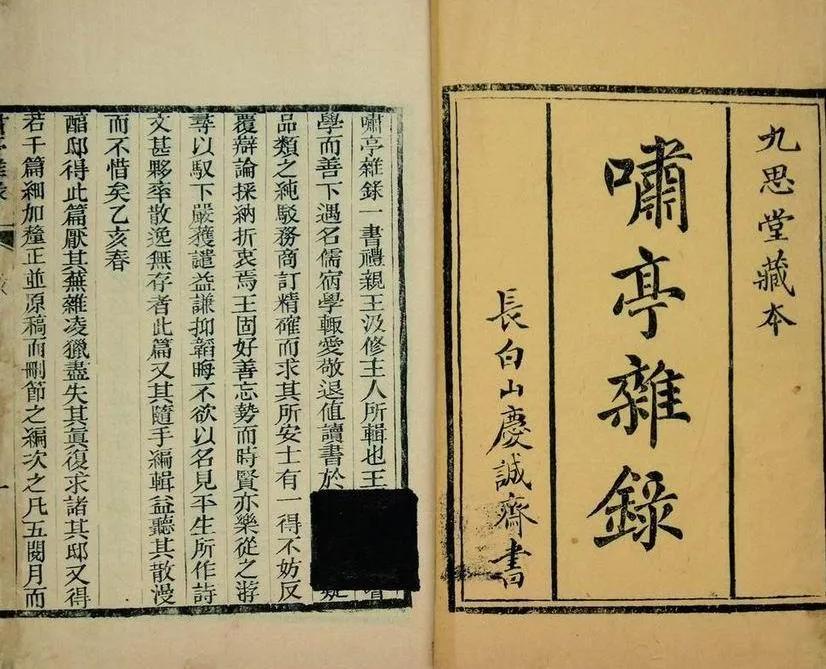 九思堂藏本
嘯亭雜錄
長白山慶誠齋書
嘯亭雜錄一書禮親王汲修主人所輯也王
學而善下遇名儒宿學輙愛敬退值讀書於
品類之純駁務商訂精確而求其所安士有一得不妨反
覆辯論採納折衷焉王固好善忘勢而時賢亦樂從之游
尋以馭下嚴獲譴益謙抑韜晦不欲以名見平生所作詩
文甚夥率散逸無存者此篇又其隨手編輯益聽其散漫
而不惜矣乙亥春
醕邸得此篇厭其蕪雜凌獵盡失其眞復求諸其邸又得
若干篇細加釐正並原稿而刪節之編次之凡五閱月而